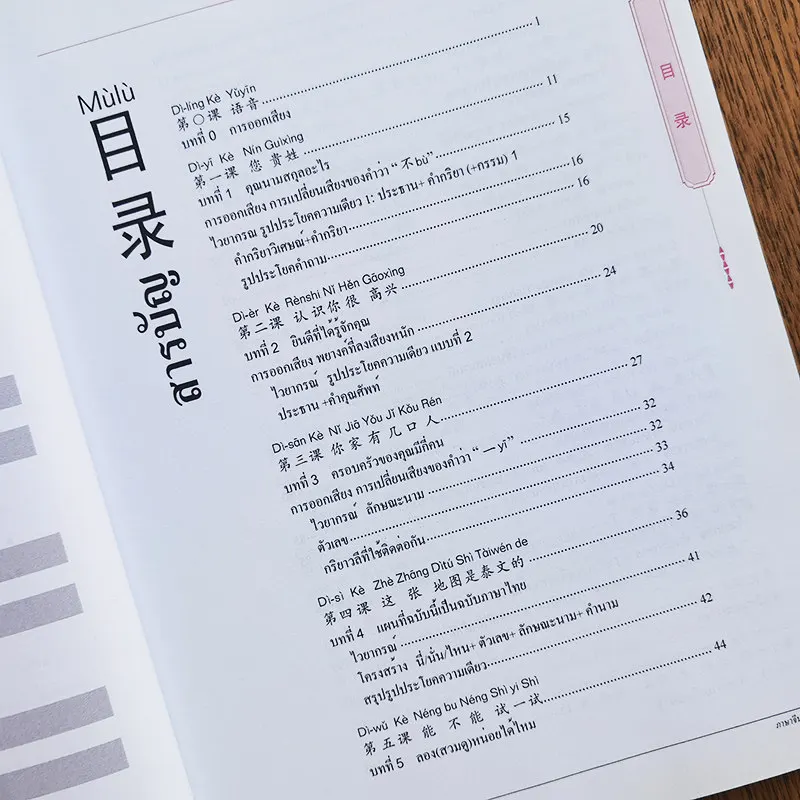 Mùlù
目录
สารบัญ
目录
Dì-líng Kè Yǔyīn
第〇课 语音
บทที่ 0 การออกเสียง 1
Dì-yī Kè Nín Guìxìng
第一课 您贵姓
บทที่ 1 คุณนามสกุลอะไร 11
การออกเสียง การเปลี่ยนเสียงของคำว่า "不bù" 15
ไวยากรณ์ รูปประโยคความเดียว 1: ประธาน+ คำกริยา (+กรรม) 1
คำกริยาวิเศษณ์+คำกริยา 16
รูปประโยคคำถาม 16
Dì-èr Kè Rènshi Nǐ Hěn Gāoxìng
第二课 认识你很高兴
บทที่ 2 ยินดีที่ได้รู้จักคุณ 20
การออกเสียง พยางค์ที่ลงเสียงหนัก 24
ไวยากรณ์ รูปประโยคความเดียว แบบที่ 2
ประธาน +คำคุณศัพท์
Dì-sān Kè Nǐ Jiā Yǒu Jǐ Kǒu Rén
第三课 你家有几口人
บทที่ 3 ครอบครัวของคุณมีกี่คน 27
การออกเสียง การเปลี่ยนเสียงของคำว่า "一yī" 32
ไวยากรณ์ ลักษณะนาม 32
ตัวเลข 33
กริยาวลีที่ใช้ติดต่อกัน 34
Dì-sì Kè Zhè Zhāng Dìtú Shì Tàiwén de
第四课 这张地图是泰文的
บทที่ 4 แผนที่ฉบับนี้เป็นฉบับภาษาไทย 36
ไวยากรณ์ 41
โครงสร้าง นี่/นั่น/ไหน+ ตัวเลข+ ลักษณะนาม+ คำนาม
สรุปรูปประโยคความเดียว 42
Dì-wǔ Kè Néng bu Néng Shì yi Shì
第五课 能不能试一试
บทที่ 5 ลอง(สวมดู)หน่อยได้ไหม 44